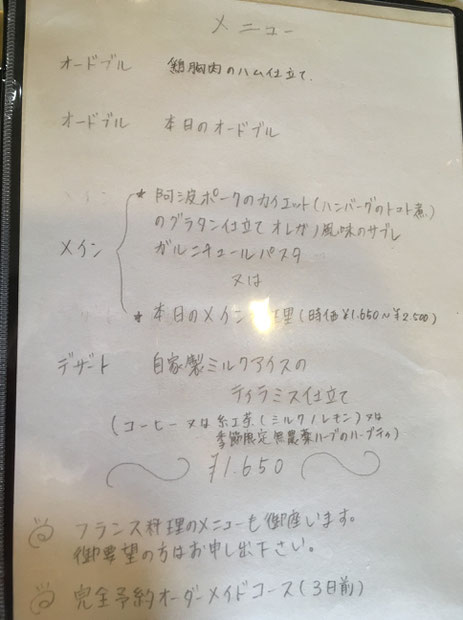 メニュー
オードブル 鶏胸肉のハム仕立て.
オードブル 本日のオードブル
メイン
* 阿波ポークのカイエット(ハンバーグのトマト煮)
のグラタン仕立て オレガノ風味のサブレ
ガルニチュールパスタ
又は
* 本日のメイン 理(時価¥1.650〜¥2.500)
デザート 自家製ミルクアイスの
ティラミス仕立て
(コーヒー又は紅茶(ミルク/レモン)又は
季節限定無農薬ハーブのハーブティ)
¥1.650
フランス料理のメニューも御座います。
御要望の方はお申し出下さい。
完全予約オーダーメイドコース(3日前)